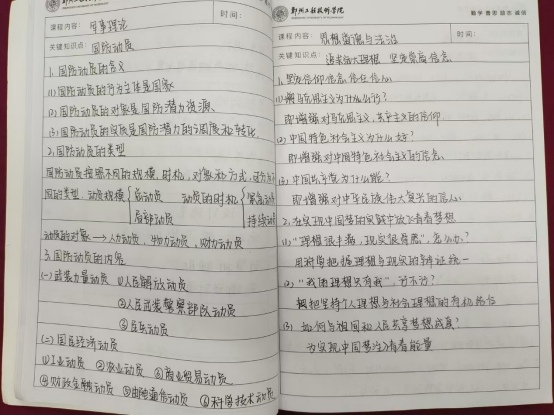 郑州工程技术学院
课程内容: 军事理论
时间:
关键知识点: 国防动员
1. 国防动员的含义
(1) 国防动员的行为主体是国家
(2) 国防动员的对象是国防潜力资源.
(3) 国防动员的实质是国防潜力的
2. 国防动员的类型
国防动员按照不同的规模、时机、对象和方式,
同的类型. 动员规模 总动员 动员的时机
局部动员 持续动
动员的对象→人力动员, 物力动员, 财力动员
3. 国防动员的内容
(一) 武装力量动员 ①人民解放动员
②人民武装警察部队动员
③民兵动员
(二) 国民经济动员
①工业动员 ②农业动员 ③商业贸易动员
④财政金融动员 ⑤邮电通信动员 ⑥科学技术动员
郑州工程技术学院
勤学 善思 励志 诚信
课程内容: 思想道德与法治
时间:
关键知识点: 追求远大理想 坚定崇高信念
1. 坚定信仰信念信心
(1) 马克思主义为什么行?
即增强对马克思主义、共产主义的信仰
(2) 中国特色社会主义为什么好?
即增强对中国特色社会主义的信念.
(3) 中国共产党为什么能?
即增强对中华民族伟大复兴的信心.
2. 在实现中国梦的实践中放飞青春梦想
(1) "理想很丰满, 现实很骨感", 怎么办?
用科学把握理想与现实的辩证统一
(2) "我的理想只有我", 行不行?
坚持个人理想与社会理想的有机结合
(3) 如何与祖国和人民共享梦想成真?
为实现中国梦注入青春能量